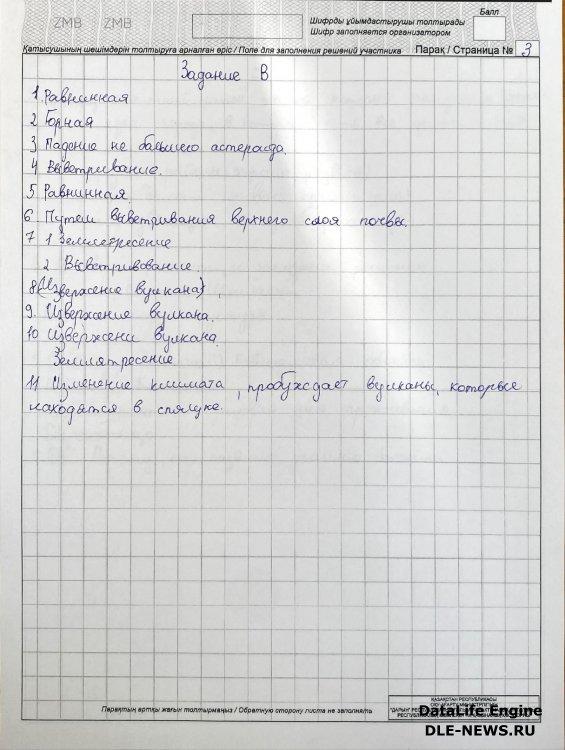 ZMB ZMB
Балл
Шифрды ұйымдастырушы толтырады
Шифр заполняется организатором
Қатысушының шешімдерін толтыруға арналған өріс / Поле для заполнения решений участника Парақ / Страница № 3
Задание В
1 Равнинная
2 Горная
3 Падение не большего астероида.
4 Выветривание.
5 Равнинная.
6 Путем выветривания верхнего слоя почвы.
7 1 Землетресение
2 Выветривование.
8 (Извержение вулкана)
9. Извержение вулкана.
10 Извержени вулкана.
Землятресение
11 Изменение климата, пробуждает вулканы, которые
находятся в спячке.
Парақтың артқы жағын толтырмаңыз / Обратную сторону листа не заполнять
ҚАЗАҚСТАН РЕСПУБЛИКАСЫ
DataLife Engine
DLE-NEWS.RU